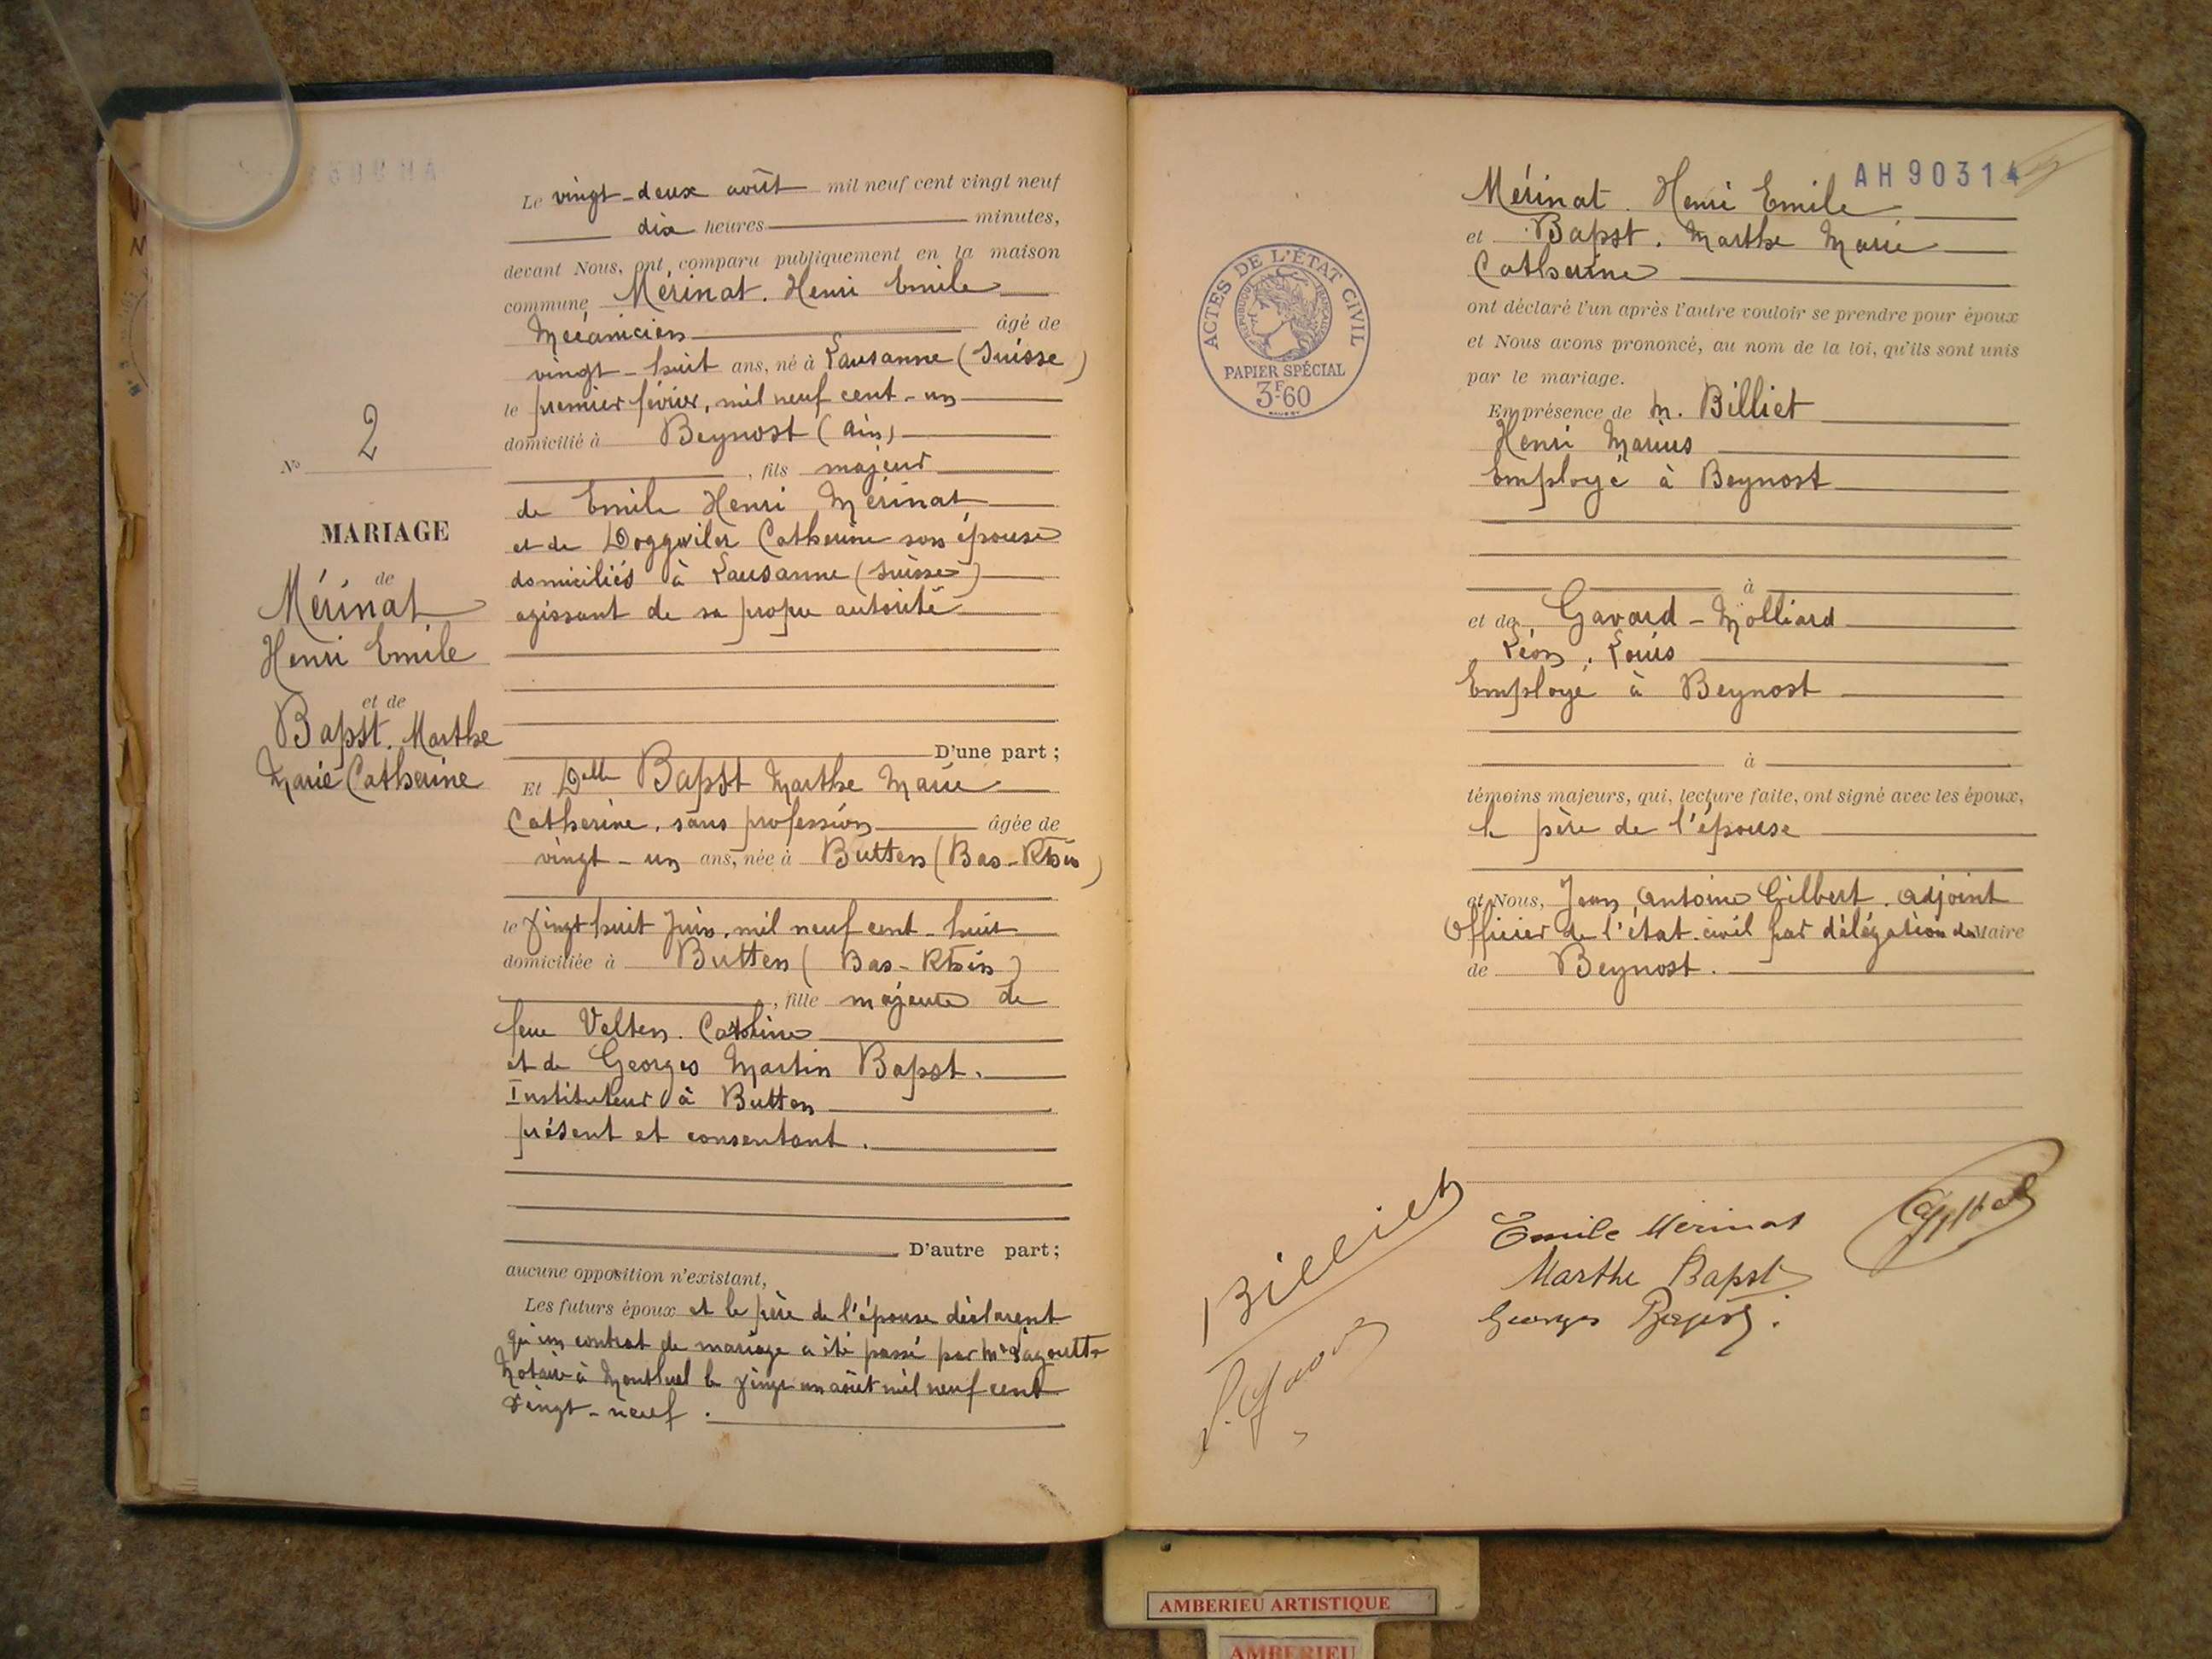 Nº 2
MARIAGE
de
Mérinat
Henri Emile
et de
Bapst. Marthe
Marie Catherine
Le vingt-deux août mil neuf cent vingt neuf
dix heures minutes,
devant Nous, ont comparu publiquement en la maison
commune Mérinat. Henri Emile
Mécanicien âgé de
vingt-huit ans, né à Lausanne (Suisse)
le premier février, mil neuf cent-un
domicilié à Beynost (Ain)
, fils majeur
de Emile Henri Mérinat
et de Doggwiler Catherine son épouse
domiciliés à Lausanne (Suisse)
agissant de sa propre autorité
D'une part;
Et Delle Bapst Marthe Marie
Catherine, sans profession âgée de
vingt-un ans, née à Butten (Bas-Rhin)
le vingt huit Juin, mil neuf cent-huit
domiciliée à Butten (Bas-Rhin)
, fille majeure de
feue Velten. Caroline
et de Georges Martin Bapst.
Instituteur à Butten
présent et consentant.
D'autre part;
aucune opposition n'existant,
Les futurs époux et le père de l'épouse déclarent
qu'un contrat de mariage a été passé par Me Lagoutte
Notaire à Montluel le vingt un août mil neuf cent
vingt-neuf.
AH90314
ACTES DE L'ÉTAT CIVIL
RÉPUBLIQUE FRANÇAISE
PAPIER SPÉCIAL
3F60
Mérinat. Henri Emile
et Bapst. Marthe Marie
Catherine
ont déclaré l'un après l'autre vouloir se prendre pour époux
et Nous avons prononcé, au nom de la loi, qu'ils sont unis
par le mariage.
En présence de M. Billiet
Henri Marius
Employé à Beynost
à
et de Gavard-Molliard
Léon, Louis
Employé à Beynost
à
témoins majeurs, qui, lecture faite, ont signé avec les époux,
le père de l'épouse
et Nous, Jean Antoine Gilbert. adjoint
Officier de l'état civil par délégation du Maire
de Beynost.
Emile Mérinat
Marthe Bapst
Georges Bapst.
Billiet
AMBERIEU ARTISTIQUE
AMBERIEU